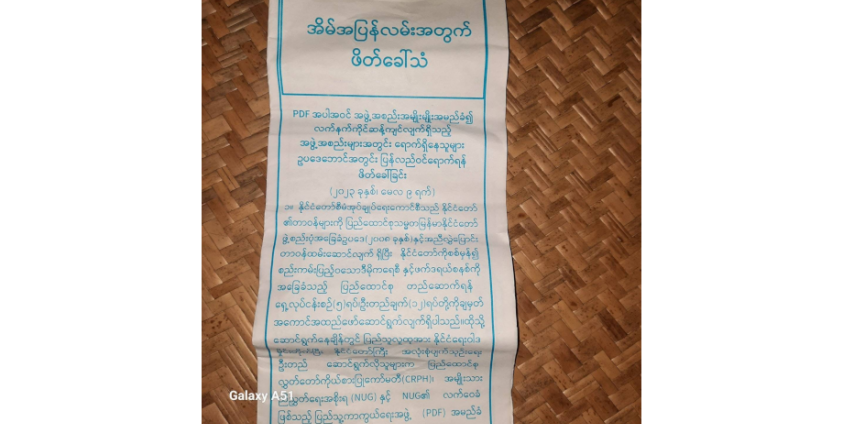 အိမ်အပြန်လမ်းအတွက်
ဖိတ်ခေါ်သံ
PDF အပါအဝင် အဖွဲ့အစည်းအမျိုးမျိုးအမည်ခံ၍
လက်နက်ကိုင်ဆန့်ကျင်လျက်ရှိသည့်
အဖွဲ့အစည်းများအတွင်း ရောက်ရှိနေသူများ
ဥပဒေဘောင်အတွင်း ပြန်လည်ဝင်ရောက်ရန်
ဖိတ်ခေါ်ခြင်း
(၂၀၂၃ ခုနှစ်၊ မေလ ၉ ရက်)
၁။ နိုင်ငံတော်စီမံအုပ်ချုပ်ရေးကောင်စီသည် နိုင်ငံတော်
၏တာဝန်များကို ပြည်ထောင်စုသမ္မတမြန်မာနိုင်ငံတော်
ဖွဲ့စည်းပုံအခြေခံဥပဒေ(၂၀၀၈ ခုနှစ်)နှင့်အညီလွှဲပြောင်း
တာဝန်ထမ်းဆောင်လျက် ရှိပြီး နိုင်ငံတော်ကိုစစ်မှန်၍
စည်းကမ်းပြည့်ဝသောဒီမိုကရေစီ နှင့်ဖက်ဒရယ်စနစ်ကို
အခြေခံသည့် ပြည်ထောင်စု တည်ဆောက်ရန်
ရှေ့လုပ်ငန်းစဉ်(၅)ရပ်ဦးတည်ချက်(၁၂)ရပ်တို့ကိုချမှတ်
အကောင်အထည်ဖော်ဆောင်ရွက်လျက်ရှိပါသည်။ထိုသို့
ဆောင်ရွက်နေချိန်တွင် ပြည်သူလူထုအား နိုင်ငံရေးဝါဒ
နိုင်ငံတော်ကြီး အလုံးစုံပျက်သုဉ်းရေး
ဦးတည် ဆောင်ရွက်လိုသူများက ပြည်ထောင်စု
လွှတ်တော်ကိုယ်စားပြုကော်မတီ(CRPH)၊ အမျိုးသား
ညီညွတ်ရေးအစိုးရ (NUG) နှင့် NUG၏ လက်ဝေခံ
ဖြစ်သည့် ပြည်သူ့ကာကွယ်ရေးအဖွဲ့ (PDF) အမည်ခံ
Galaxy A51